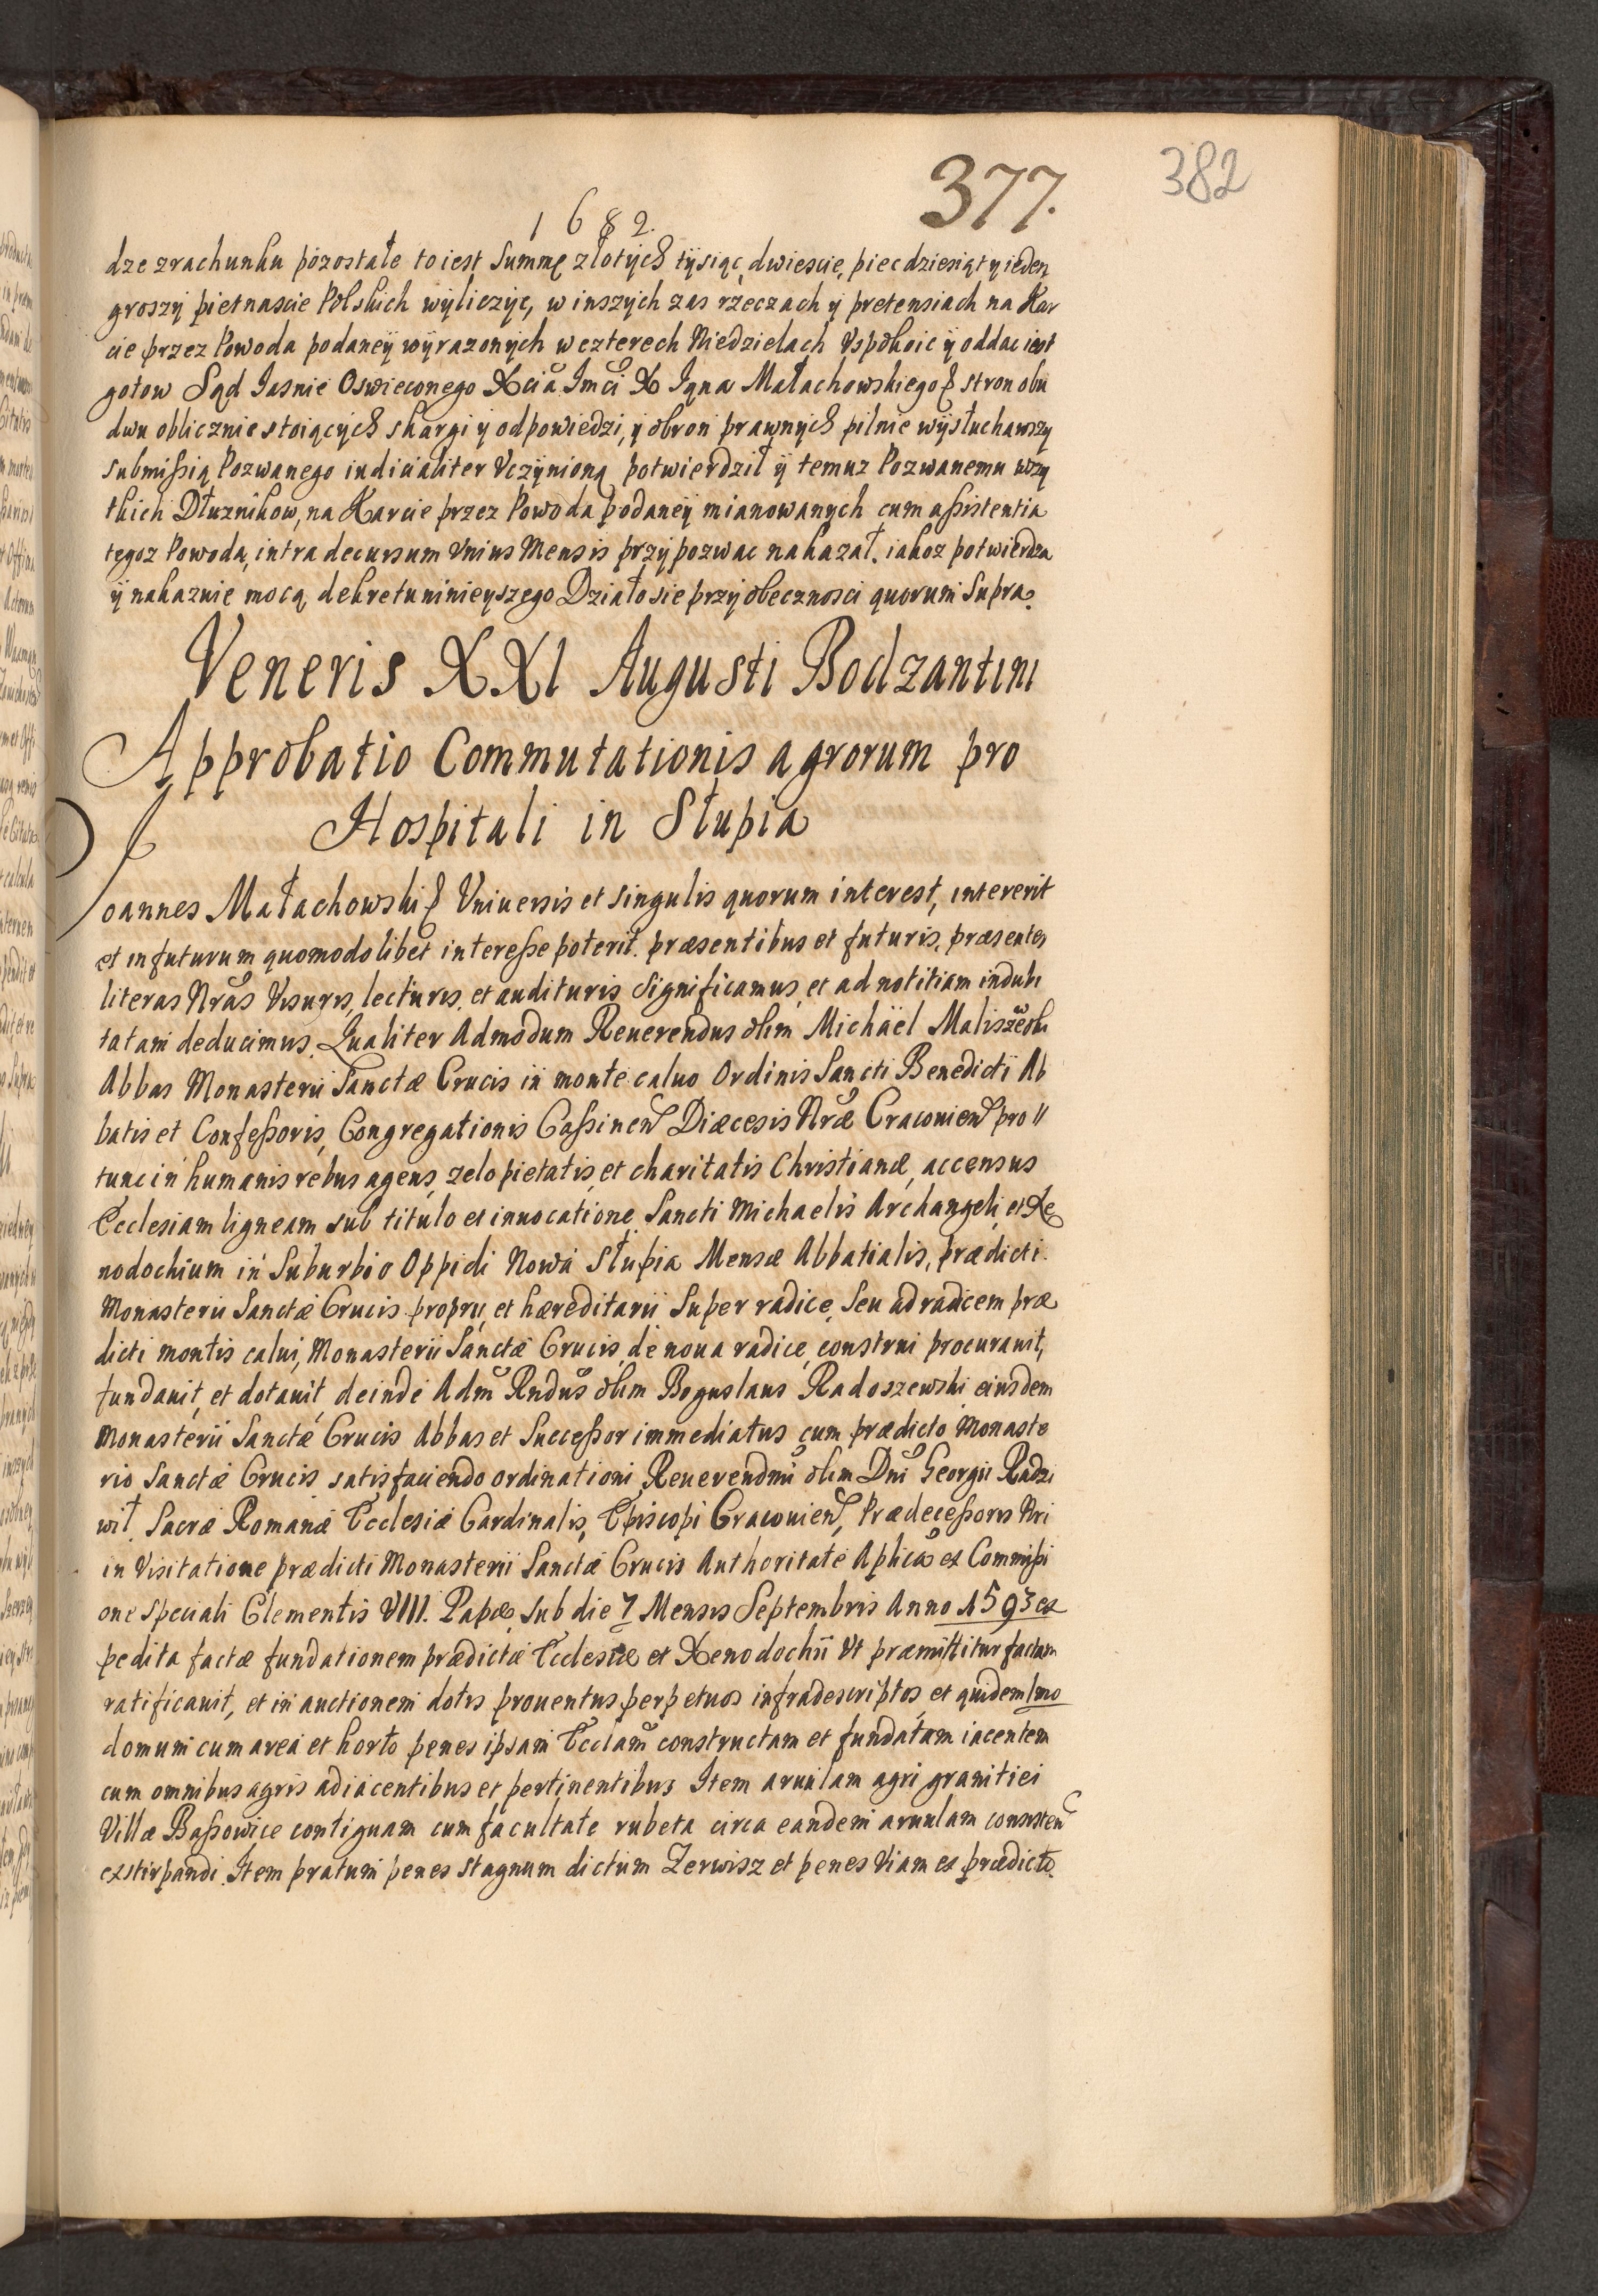 377.
382
1682.
dze zrachunku pozostałe to iest Summę złotych tysiąc dwiescie piec dziesiąt y ieden
groszy pietnascie Polskich wyliczyc, w inszych zas rzeczach y pretensiach na Kar
cie przez Powoda podaney wyrazonych w czterech Niedzielach Vspokoic y oddac iest
gotow Sąd Iasnie Oswieconego Xcia Imci X Iana Małachowskiego stron obu
dwu oblicznie stoiących skargi y odpowiedzi, y obron prawnych pilnie wysłuchawszy
submissią Pozwanego iudicialiter Vczynioną potwierdził y temuz Pozwanemu wszy
tkich Dłuznikow, na Karcie przez Powoda podaney mianowanych cum assistentia
tegoz Powoda, intra decursum Vnius Mensis przypozwac nakazał. iakoz potwierdza
y nakazuie mocą dekretu ninieyszego Działo sie przy obecznosci quorum Supra.
Veneris XXI Augusti Bodzantini
Approbatio Commutationis agrorum pro
Hospitali in Słupia
Ioannes Małachowski Vniuersis et singulis quorum interest, intererit
et in futurum quomodolibet interesse poterit. præsentibus et futuris, præsentes
literas Nras Visuris, lecturis, et audituris Significamus, et ad notitiam indubi
tatam deducimus. Qualiter Admodum Reuerendus olim Michäel Maliszewski
Abbas Monasterii Sanctæ Crucis in monte caluo Ordinis Sancti Benedicti Ab
batis et Confessoris, Congregationis Cassinen Diæcesis Nræ Cracouien pro
tunc in humanis rebus agens, zelo pietatis, et charitatis Christianæ, accensus
Ecclesiam ligneam sub titulo et inuocatione Sancti Michaelis Archangeli, et Xe
nodochium in Suburbio Oppidi Nowa Słupia Mensæ Abbatialis, prædicti
Monasterii Sanctæ Crucis proprii, et hæreditarii Super radice, Seu ad radicem præ
dicti montis calui, Monasterii Sanctæ Crucis, de noua radice, construi procurauit,
fundauit, et dotauit, deinde Adm Rndus olim Boguslaus Radoszewski eiusdem
Monasterii Sanctæ Crucis Abbas et Successor immediatus cum prædicto Monaste
rio Sanctæ Crucis satisfaciendo ordinationi Reuerendmi olim Dni Georgii Radzi
wił Sacræ Romanæ Ecclesiæ Cardinalis, Episcopi Cracouien, Prædecessoris Nri
in Visitatione prædicti Monasterii Sanctæ Crucis Authoritate Aplica et Commissi
one speciali Clementis VIII. Papæ, sub die 7 Mensis Septembris Anno 1593 ex
pedita factæ fundationem prædictæ Ecclesiæ et Xenodochii Vt præmittitur factam
ratificauit, et in auctionem dotis prouentus perpetuos infradescriptos, et quidem Imo
domum cum area et horto penes ipsam Ecclam constructam et fundatam iacentem
cum omnibus agris adiacentibus et pertinentibus Item aruulam agri granitiei
Villæ Bassowice contiguam cum facultate rubeta circa eandem aruulam consisten
exstirpandi. Item pratum penes stagnum dictum Zerwisz et penes Viam ex prædicto